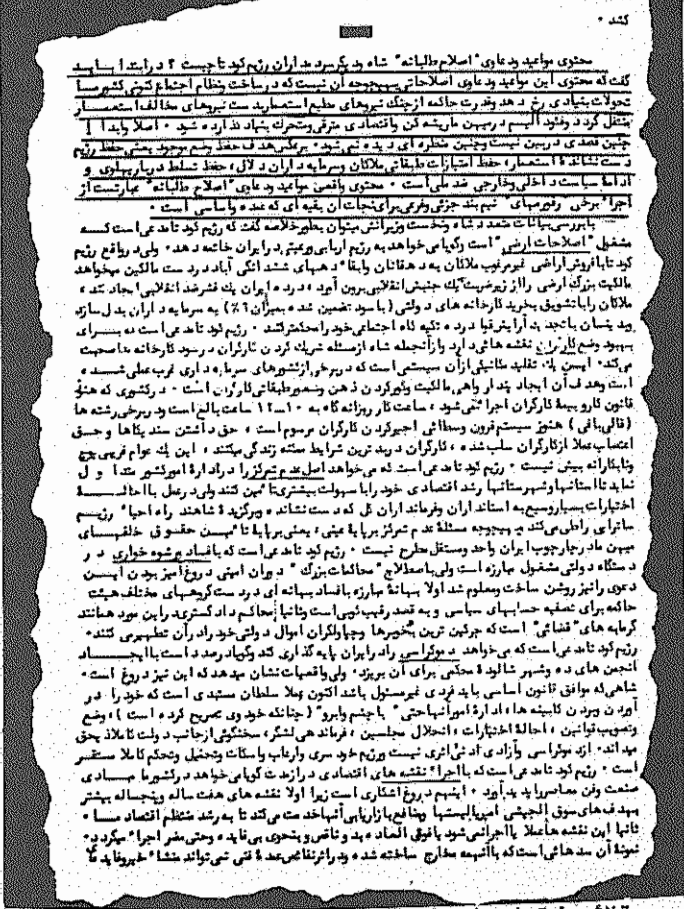 کنند ۰
محتوی مواعید ودعاوی "اصلاح طلبانه" شاه ودیگرسردمداران رژیم کودتاچیست ؟ درابتدا بایــد
گفت که محتوی این مواعید ودعاوی اصلاحاتی بهیچوجه آن نیست که درساخت ونظام اجتماع کنونی کشورمــا
تحولات بنیادی رخ دهد وقدرت حاکمه ازچنگ نیروهای مطیع استعماربدست نیروهای مخالف استعمــار
منتقل گردد وفئودالیسم درمیهن ماریشه کن واقتصادی مترقی ومتحرک بنیاد گذارده شود ۰ اصلا وابدا
چنین قصدی دربین نیست وچنین منظره ای دیده نمی شود ۰ برعکس هدف حفظ وضع موجود یعنی حفظ رژیم
دست نشاندهٔ استعمار، حفظ امتیازات طبقاتی ملاکان وسرمایه داران دلال، حفظ تسلط درباریهلوی و
ادامهٔ سیاست داخلی وخارجی ضد ملی است ۰ محتوی واقعی مواعید ودعاوی "اصلاح طلبانه" عبارتست از
اجرا" برخی رفورمهای نیم بند جزئی وفرعی برای نجات آن بقیه ای که عمده واساسی است ۰
بابررسی بیانات متعدد شاه ونخست وزیرانش میتوان بطورخلاصه گفت که رژیم کودتامدعی است کــه
مشغول "اصلاحات ارضی" است وگویامی خواهد به رژیم ارباب ورعیتی درایران خاتمه دهد۰ ولی درواقع رژیم
کودتابافروش اراضی غیرمرغوب ملاکان به دهقانان وابقاء دههای ششدانگی آباد دردست مالکین میخواهد
مالکیت بزرگ ارضی رااززیرضربت یک جنبش انقلابی برون آورد، درده ایران یک قشرضد انقلابی ایجاد کند،
ملاکان راباتشویق بخرید کارخانه های دولتی (باسود تضمین شده بمیزان ٦٪) به سرمایه داران بدل سازد
بهبود وضع کارگران نقشه هائی دارد وازآنجمله شاه ازمسئله شریک کردن کارگران درسود کارخانه هاصحبت
می کند۰ این یک تقلید مکانیکی ازآن سیستمی است که دربرخی ازکشورهای سرمایه داری غرب عملی شــده
است وهدف آن ایجاد پندار واهی مالکیت وکورکردن ذهن وشعورطبقاتی کارگران است ۰ درکشوری که هنوز
قانون کاروبیمهٔ کارگران اجرا نمی شود، ساعت کار روزانه گاه به ۱۰ـ۱۲ ساعت بالغ است ودربرخی رشته ها
(قالی بافی) هنوز سیستم قرون وسطائی اجیرکردن کارگران مرسوم است، حق داشتن سندیکاها وحــق
اعتصاب عملا ازکارگران سلب شده، کارگران دربدترین شرایط ممکنه زندگی میکنند، این یک عوام فریبی پوچ
وتابکارانه بیش نیست ۰ رژیم کودتامدعی است که می خواهد اصل عدم تمرکز را دراداره امورکشور
نماید تااستانهاوشهرستانها رشد اقتصادی خود رابا سهولت بیشتری تامین کنند ولی درعمل
اختیارات بسیاروسیع به استانداران وفرمانداران کل که دست نشانده وبرگزیدهٔ شاهند راه احیاء رژیــم
ساتراپی راطی می کند بهیچوجه مسئلهٔ عدم تمرکز برپایهٔ عینی، یعنی برپایهٔ تامین حقــوق خلقهــای
میهن مادرچارچوب ایران واحد ومستقل مطرح نیست ۰ رژیم کودتامدعی است که بافساد ورشوه خواری در
دستگاه دولتی مشغول مبارزه است ولی باصطلاح "محاکمات بزرگ" دوران امینی دروغ آمیز بودن ایــن
دعوی رانیز روشن ساخت ومعلوم شد اولا بهانهٔ مبارزه بافساد بهانه ای دردست گروههای مختلف هیئت
حاکمه برای تصفیه حسابهای سیاسی وبه قصد رقیب کوبی است وثانیا محاکم دادگستری دراین مورد همانند
گرمابه های "قضائی" است که چرکین ترین دزدها وچپاولگران اموال دولتی خود رادرآن تطهیرمی کنند۰
رژیم کودتامدعی است که می خواهد دموکراسی رادرایران پایه گذاری کند وگویادرصدد است باایجــاد
انجمن های ده وشهر شالودهٔ محکمی برای آن بریزد۰ ولی واقعیات نشان میدهد که این نیز دروغ است۰
شاهی که موافق قانون اساسی باید فردی غیرمسئول باشد اکنون عملا سلطان مستبدی است که خودرا در
آوردن وبردن کابینه ها، ادارهٔ امورآنهاحتی "باچشم وابرو" (چنانکه خودوی تصریح کرده است)، وضع
وتصویب قوانین، احالهٔ اختیارات، انحلال مجلسین، فرماندهی لشکر، سخنگوئی ازجانب دولت کاملاذیحق
میداند۰ ازدموکراسی وآزادی ادنی اثری نیست ورژیم خودسری وارعاب واسکات وتحمیل وتحکم کاملا مستقر
است ۰ رژیم کودتامدعی است که بااجراء نقشه های اقتصادی درازمدت گویامی خواهد درکشورما
صنعت وفن معاصرراپدیدآورد ۰ اینهم دروغ آشکاری است زیرا اولا نقشه های هفت ساله وپنجساله بیشتر
بهدف های سوق الجیشی امپریالیستها ومنافع بازاریابی آنهاخدمت می کند تا به رشد منظم اقتصاد مــا ۰
ثانیا این نقشه هاعملا یااجرانمی شود یافوق العاده بد وناقص وبنحوی بی فایده وحتی مضر اجرا میگردد۰
نمونهٔ آن سدهائی است که باآنهمه مخارج ساخته شده ودراثرنقائص عمدهٔ فنی نمی تواند منشاء خیروفایده